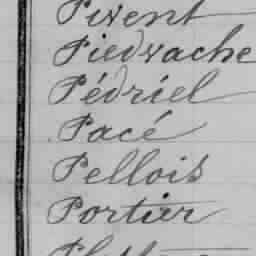 Pivent
Piedvache
Pédriel
Pacé
Pellois
Portier